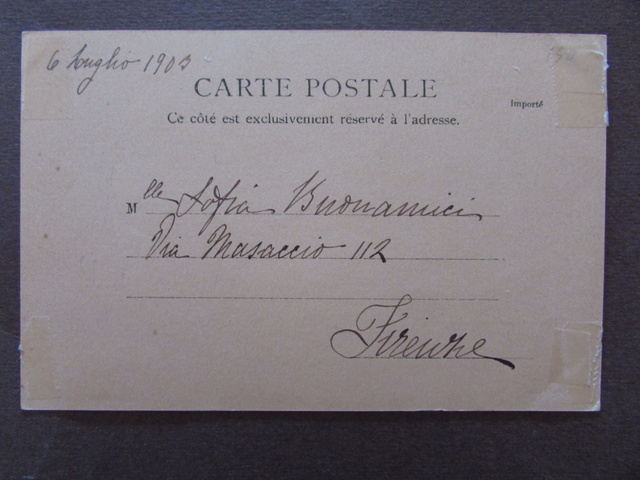 6 Luglio 1903
CARTE POSTALE
Importé
Ce côté est exclusivement réservé à l'adresse.
Mlle Sofia Buonamici
Via Masaccio 112
Firenze